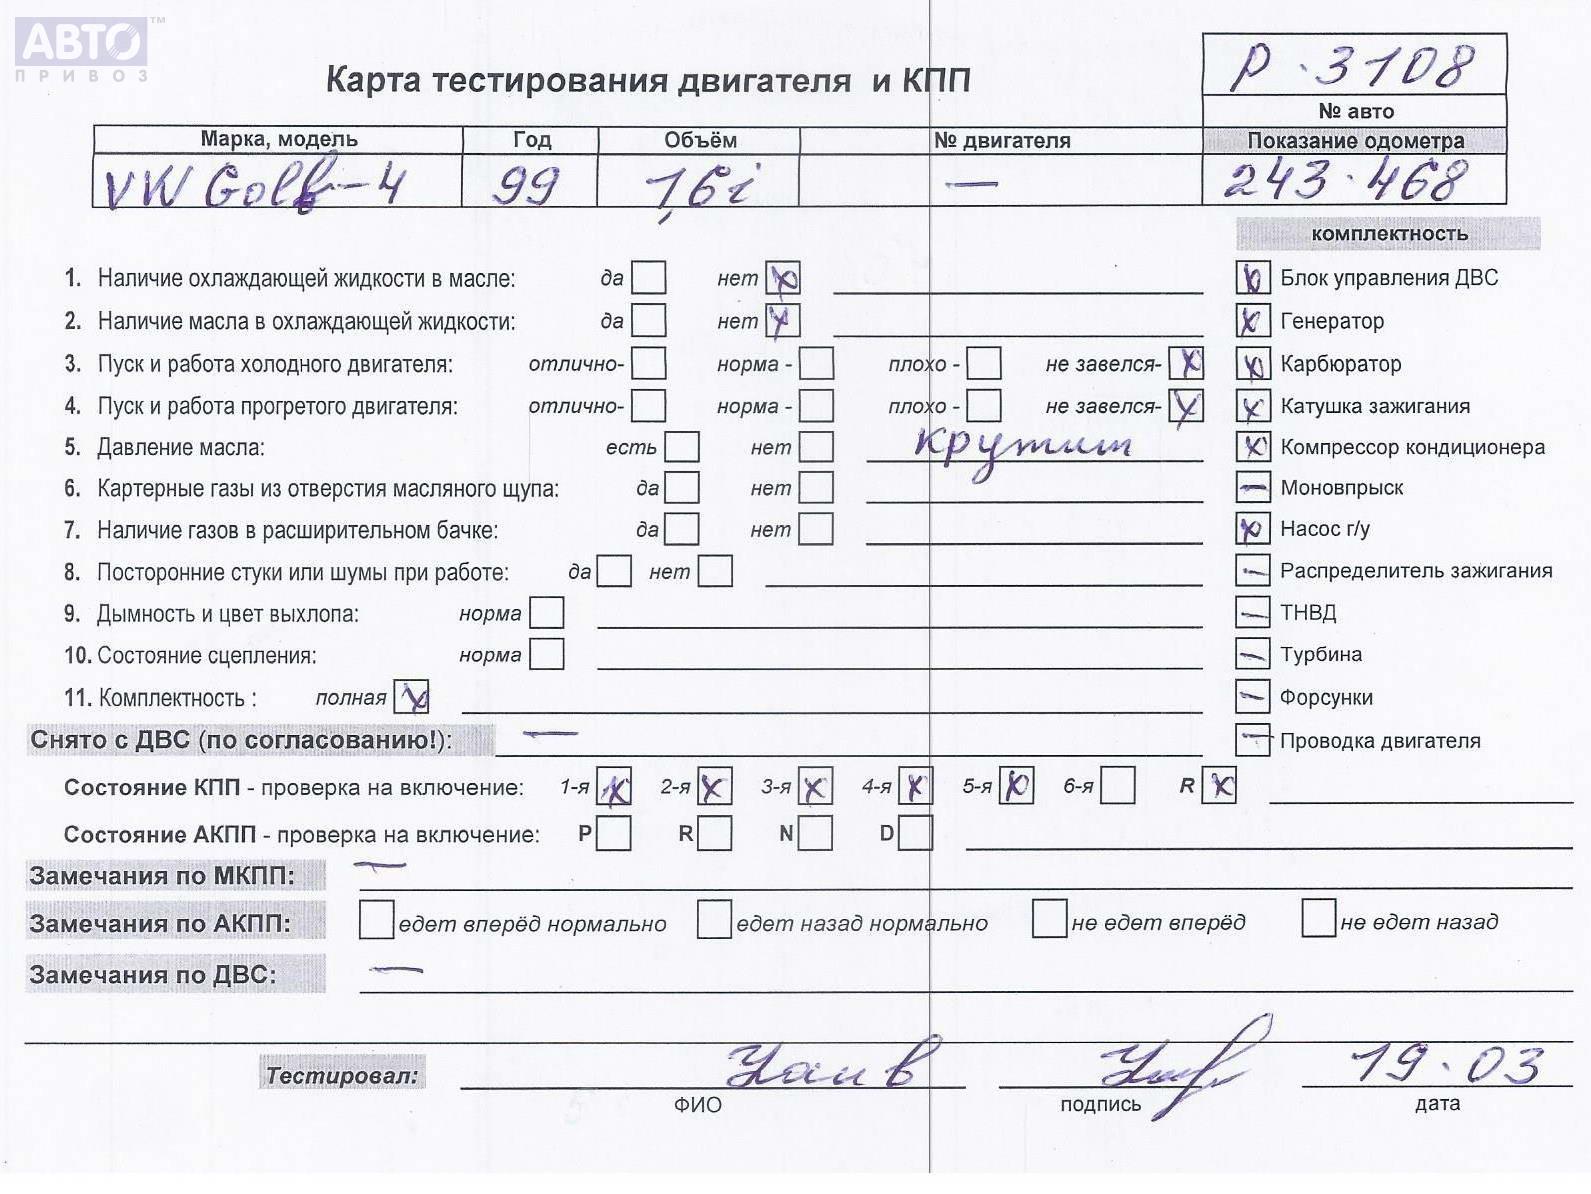 АВТО™
ПРИВОЗ
Карта тестирования двигателя и КПП
P·3108
№ авто
Марка, модель Год Объём № двигателя Показание одометра
VW Golf-4 99 1,6i — 243·468
комплектность
1. Наличие охлаждающей жидкости в масле: да нет x
Блок управления ДВС x
2. Наличие масла в охлаждающей жидкости: да нет x
Генератор x
3. Пуск и работа холодного двигателя: отлично- норма - плохо - не завелся- x
Карбюратор x
4. Пуск и работа прогретого двигателя: отлично- норма - плохо - не завелся- x
Катушка зажигания x
5. Давление масла: есть нет крутит
Компрессор кондиционера x
6. Картерные газы из отверстия масляного щупа: да нет
Моновпрыск —
7. Наличие газов в расширительном бачке: да нет
Насос г/у x
8. Посторонние стуки или шумы при работе: да нет
Распределитель зажигания —
9. Дымность и цвет выхлопа: норма
ТНВД —
10. Состояние сцепления: норма
Турбина —
11. Комплектность : полная x
Форсунки —
Снято с ДВС (по согласованию!): —
Проводка двигателя —
Состояние КПП - проверка на включение: 1-я x 2-я x 3-я x 4-я x 5-я x 6-я R x
Состояние АКПП - проверка на включение: P R N D
Замечания по МКПП: —
Замечания по АКПП: едет вперёд нормально едет назад нормально не едет вперёд не едет назад
Замечания по ДВС: —
Тестировал: 19.03
ФИО подпись дата